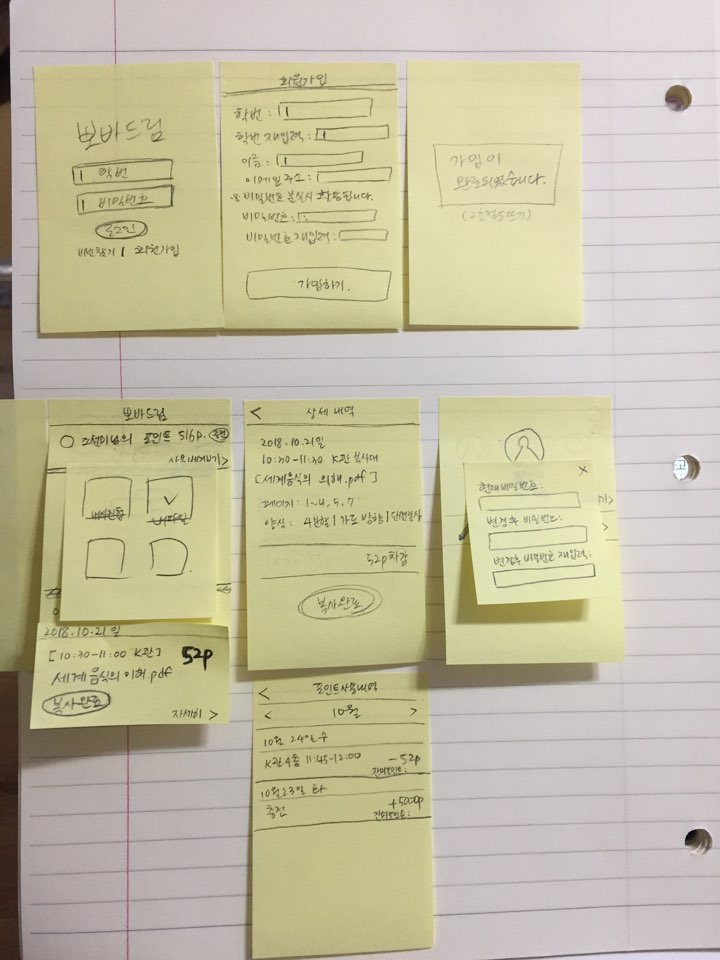 뽀바드림
학번
비밀번호
로그인
비번찾기 | 회원가입
회원가입
학번 :
학번 재입력 :
이름 :
이메일 주소 :
※ 비밀번호 분실시 활용됩니다.
비밀번호 :
비밀번호 재입력 :
가입하기
가입이
완료되었습니다.
뽀바드림
님의 포인트 516p. 충전
>
2018.10.21일
[10:30-11:00 K관]
52p
세계음식의 이해.pdf
복사완료
자세히 >
< 상세 내역
2018.10.21일
10:30-11:30 K관 복사대
[세계음식의 이해.pdf]
페이지 : 1~4, 5, 7
양식 : 4분할 | 가로 방향 | 단면복사
52p 차감
복사완료
×
현재 비밀번호 :
변경후 비밀번호 :
변경후 비밀번호 재입력 :
< 포인트사용내역
< 10월 >
10월 24일 수
K관 4층 11:45-12:00 -52p
잔여포인트 :
10월 23일 화
충전 +5000p
잔여포인트 :